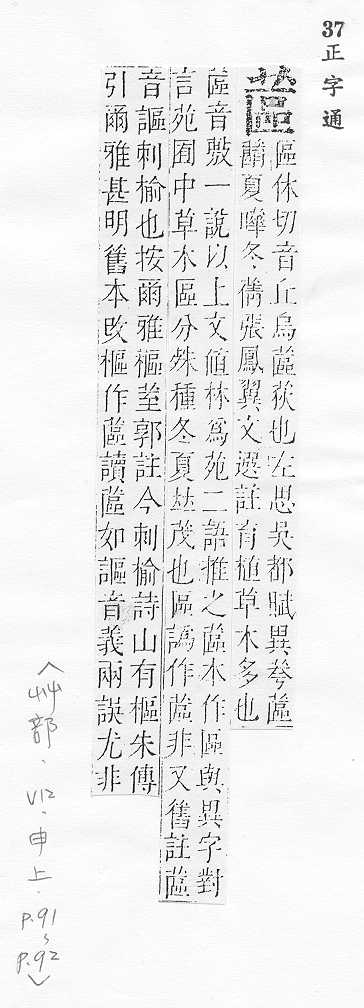 37正字通
蓲
區休切音丘烏蓲荻也左思吳都賦異荂蓲
蘛夏曄冬蒨張鳳翼文選註育植草木多也
蓲音敷一說以上文値林爲苑二語推之蓲本作區與異字對
言苑囿中草木區分殊種冬夏𠀤茂也區譌作蓲非又舊註蓲
音謳刺榆也按爾雅樞荎郭註今刺榆詩山有樞朱傳
引爾雅甚明舊本攺樞作蓲讀蓲如謳音義兩誤尤非
〈艸部．V12．申上．P.91~P.92〉